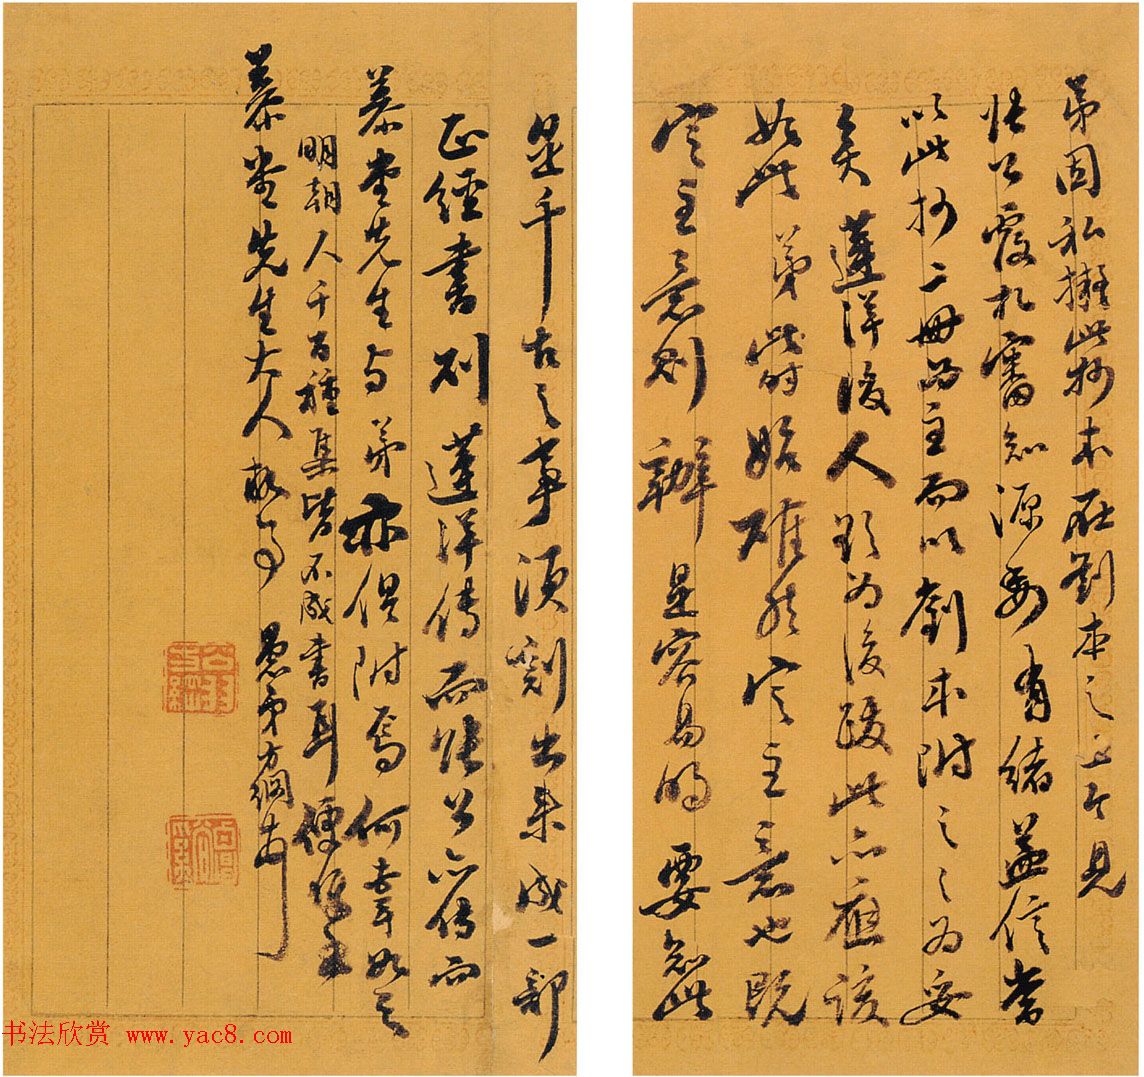 弟固私擬此抄本在劉本之上今見
張公覆札審知源委有緒益信當
以此抄二冊為主而以劉本附之之為妥
矣蓮洋後人欲為後跋此亦應該
如此弟此時始確然定主意也既
定主意則辦是容易的要知此
是千古之事須刻出來成一部
正經書則蓮洋傳而張公亦傳而
慕堂先生與弟亦俱附焉何幸如之
明朝人千百種集皆不成書耳
慕堂先生大人 愚弟方綱頓
书法欣赏 www.yac8.com